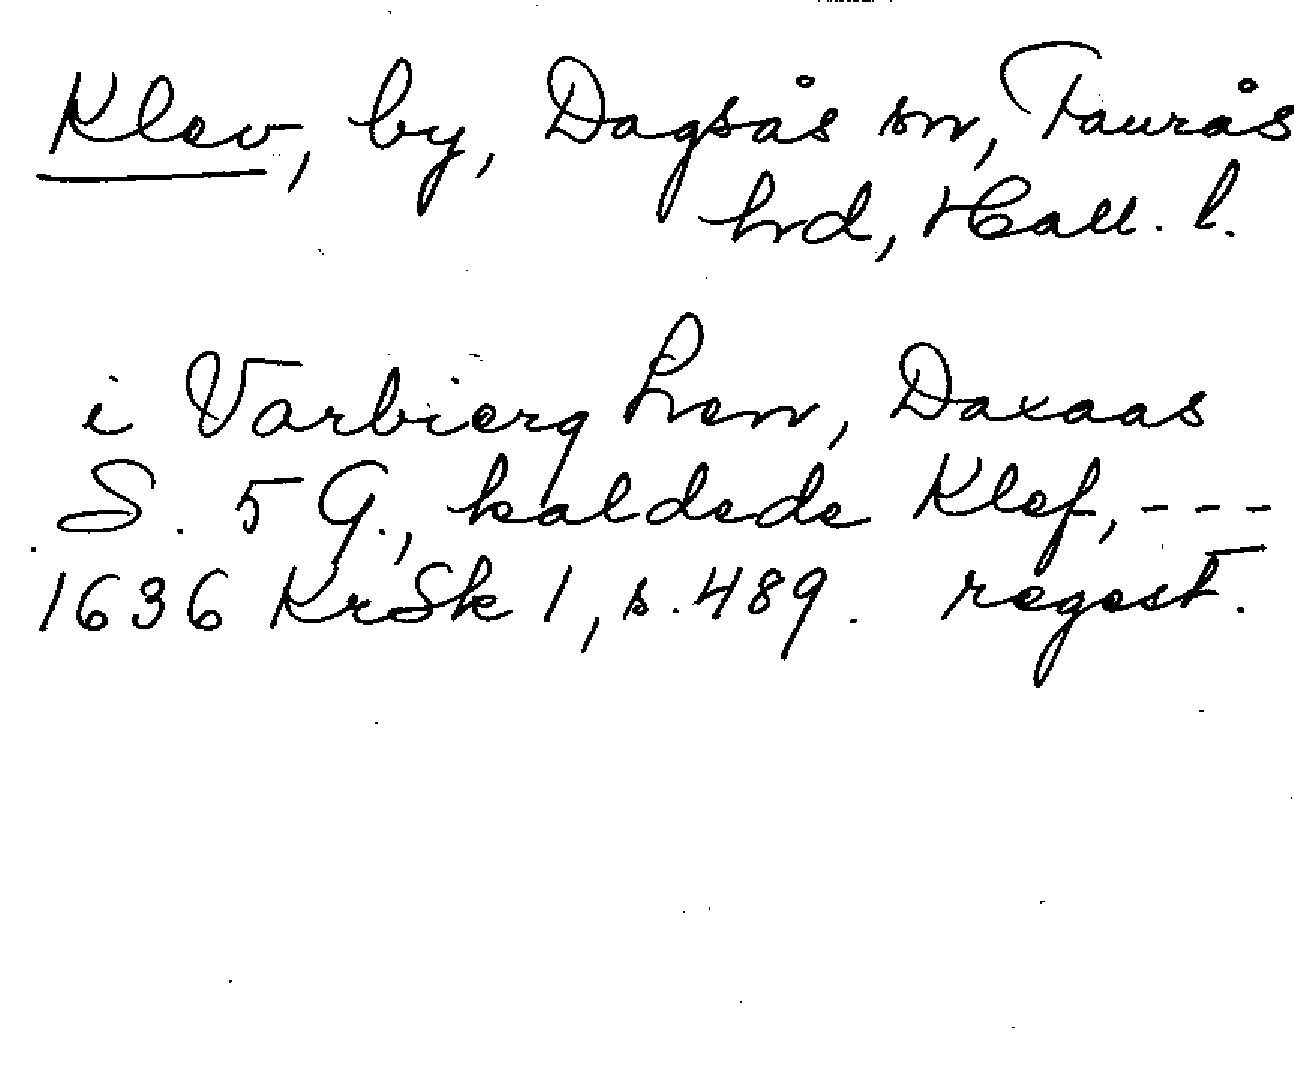 Klev, by, Dagsås sn, Faurås
hrd, Hall. l.
i Varbierg Len, Daxaas
S. 5 G., kaldede Klef, ---
1636 KrSk 1, s. 489. regest.